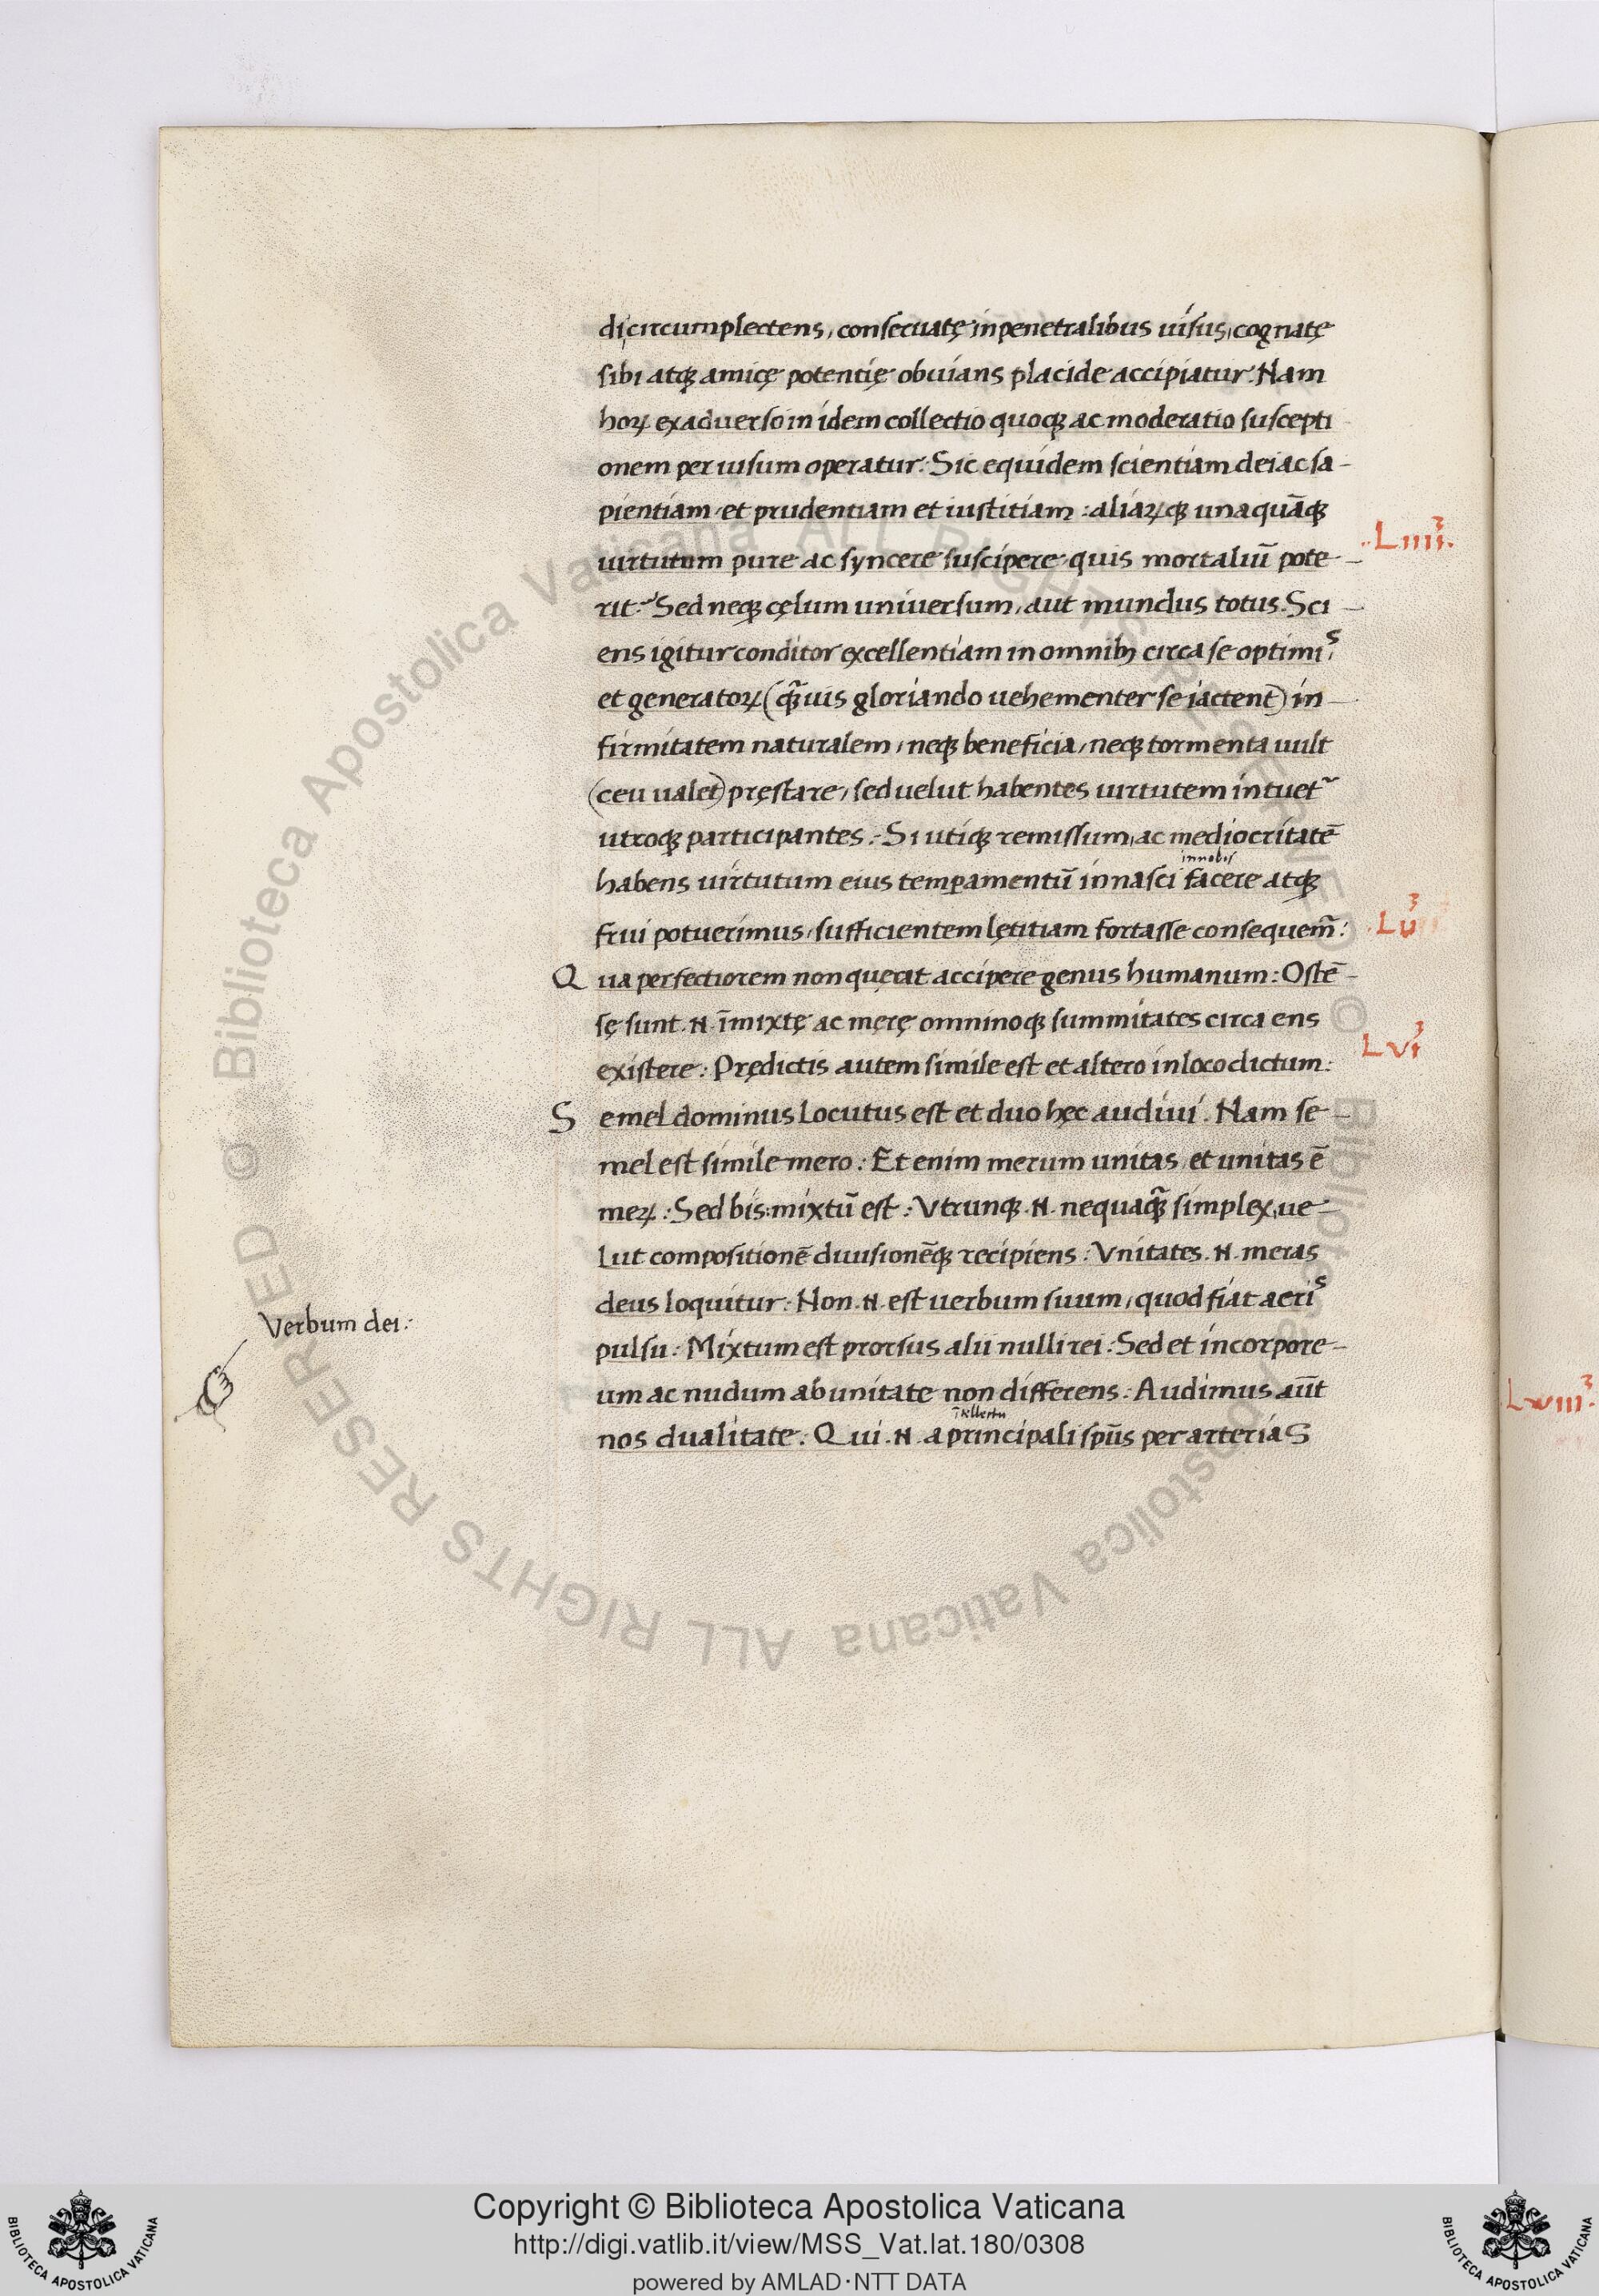 di circumplectens, conseruatę in penetralibus uisus, cognatę
sibi atqꝫ amicę potentię obuians placide accipiatur. Nam
hoꝝ ex aduerso in idem collectio quoqꝫ ac moderatio suscepti
onem per uisum operatur: Sic equidem scientiam dei ac sa-
pientiam et prudentiam et iustitiam: aliaꝝqꝫ unaquāqꝫ
·LIIII.
uirtutum pure ac syncere suscipere quis mortaliū pote-
rit? Sed neqꝫ cęlum uniuersum, aut mundus totus. Sci-
ens igitur conditor excellentiam in omnibꝫ circa se optimiˢ
et generatoꝝ (q̃uis gloriando uehementer se iactent) in-
firmitatem naturalem, neqꝫ beneficia, neqꝫ tormenta uult
(ceu ualet) pręstare, sed uelut habentes uirtutem intuet~
utroqꝫ participantes: Si utiqꝫ remissum, ac mediocritatē
in nobis
habens uirtutum eius temperamentū innasci facere atqꝫ
frui potuerimus, sufficientem lętitiam fortasse consequem̃:
·LV
Qua perfectiorem non querat accipere genus humanum: Ostē-
sę sunt .N. īmixtę ac merę omninoqꝫ summitates circa ens
LVI
existere: Prędictis autem simile est et altero in loco dictum:
Semel dominus locutus est et duo hęc audiui. Nam se-
mel est simile mero: Et enim merum unitas, et unitas ē
meꝝ: Sed bis: mixtū est: Vtrunqꝫ .N. nequaq̃ simplex, ue-
lut compositionē diuisionēqꝫ recipiens: Vnitates .N. meras
deus loquitur: Non .N. est uerbum suum, quod fiat aeriˢ
Verbum dei:
pulsu: Mixtum est prorsus alii nulli rei: Sed et incorpore-
um ac nudum ab unitate non differens: Audimus aūt
LVIII.
ītellectu
nos dualitate: Qui .N. a principali sp̄us per arterias
Copyright © Biblioteca Apostolica Vaticana
http://digi.vatlib.it/view/MSS_Vat.lat.180/0308
powered by AMLAD·NTT DATA
BIBLIOTECA APOSTOLICA VATICANA
BIBLIOTECA APOSTOLICA VATICANA
© Biblioteca Apostolica Vaticana ALL RIGHTS RESERVED © Biblioteca Apostolica Vaticana ALL RIGHTS RESERVED